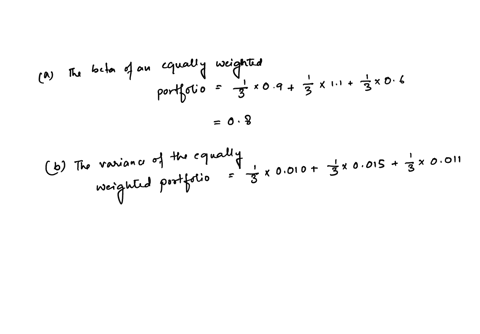 (a) The beta of an equally weighted
portfolio = 1/3 × 0.9 + 1/3 × 1.1 + 1/3 × 0.6
= 0.8
(b) The variance of the equally
weighted portfolio = 1/3 × 0.010 + 1/3 × 0.015 + 1/3 × 0.011